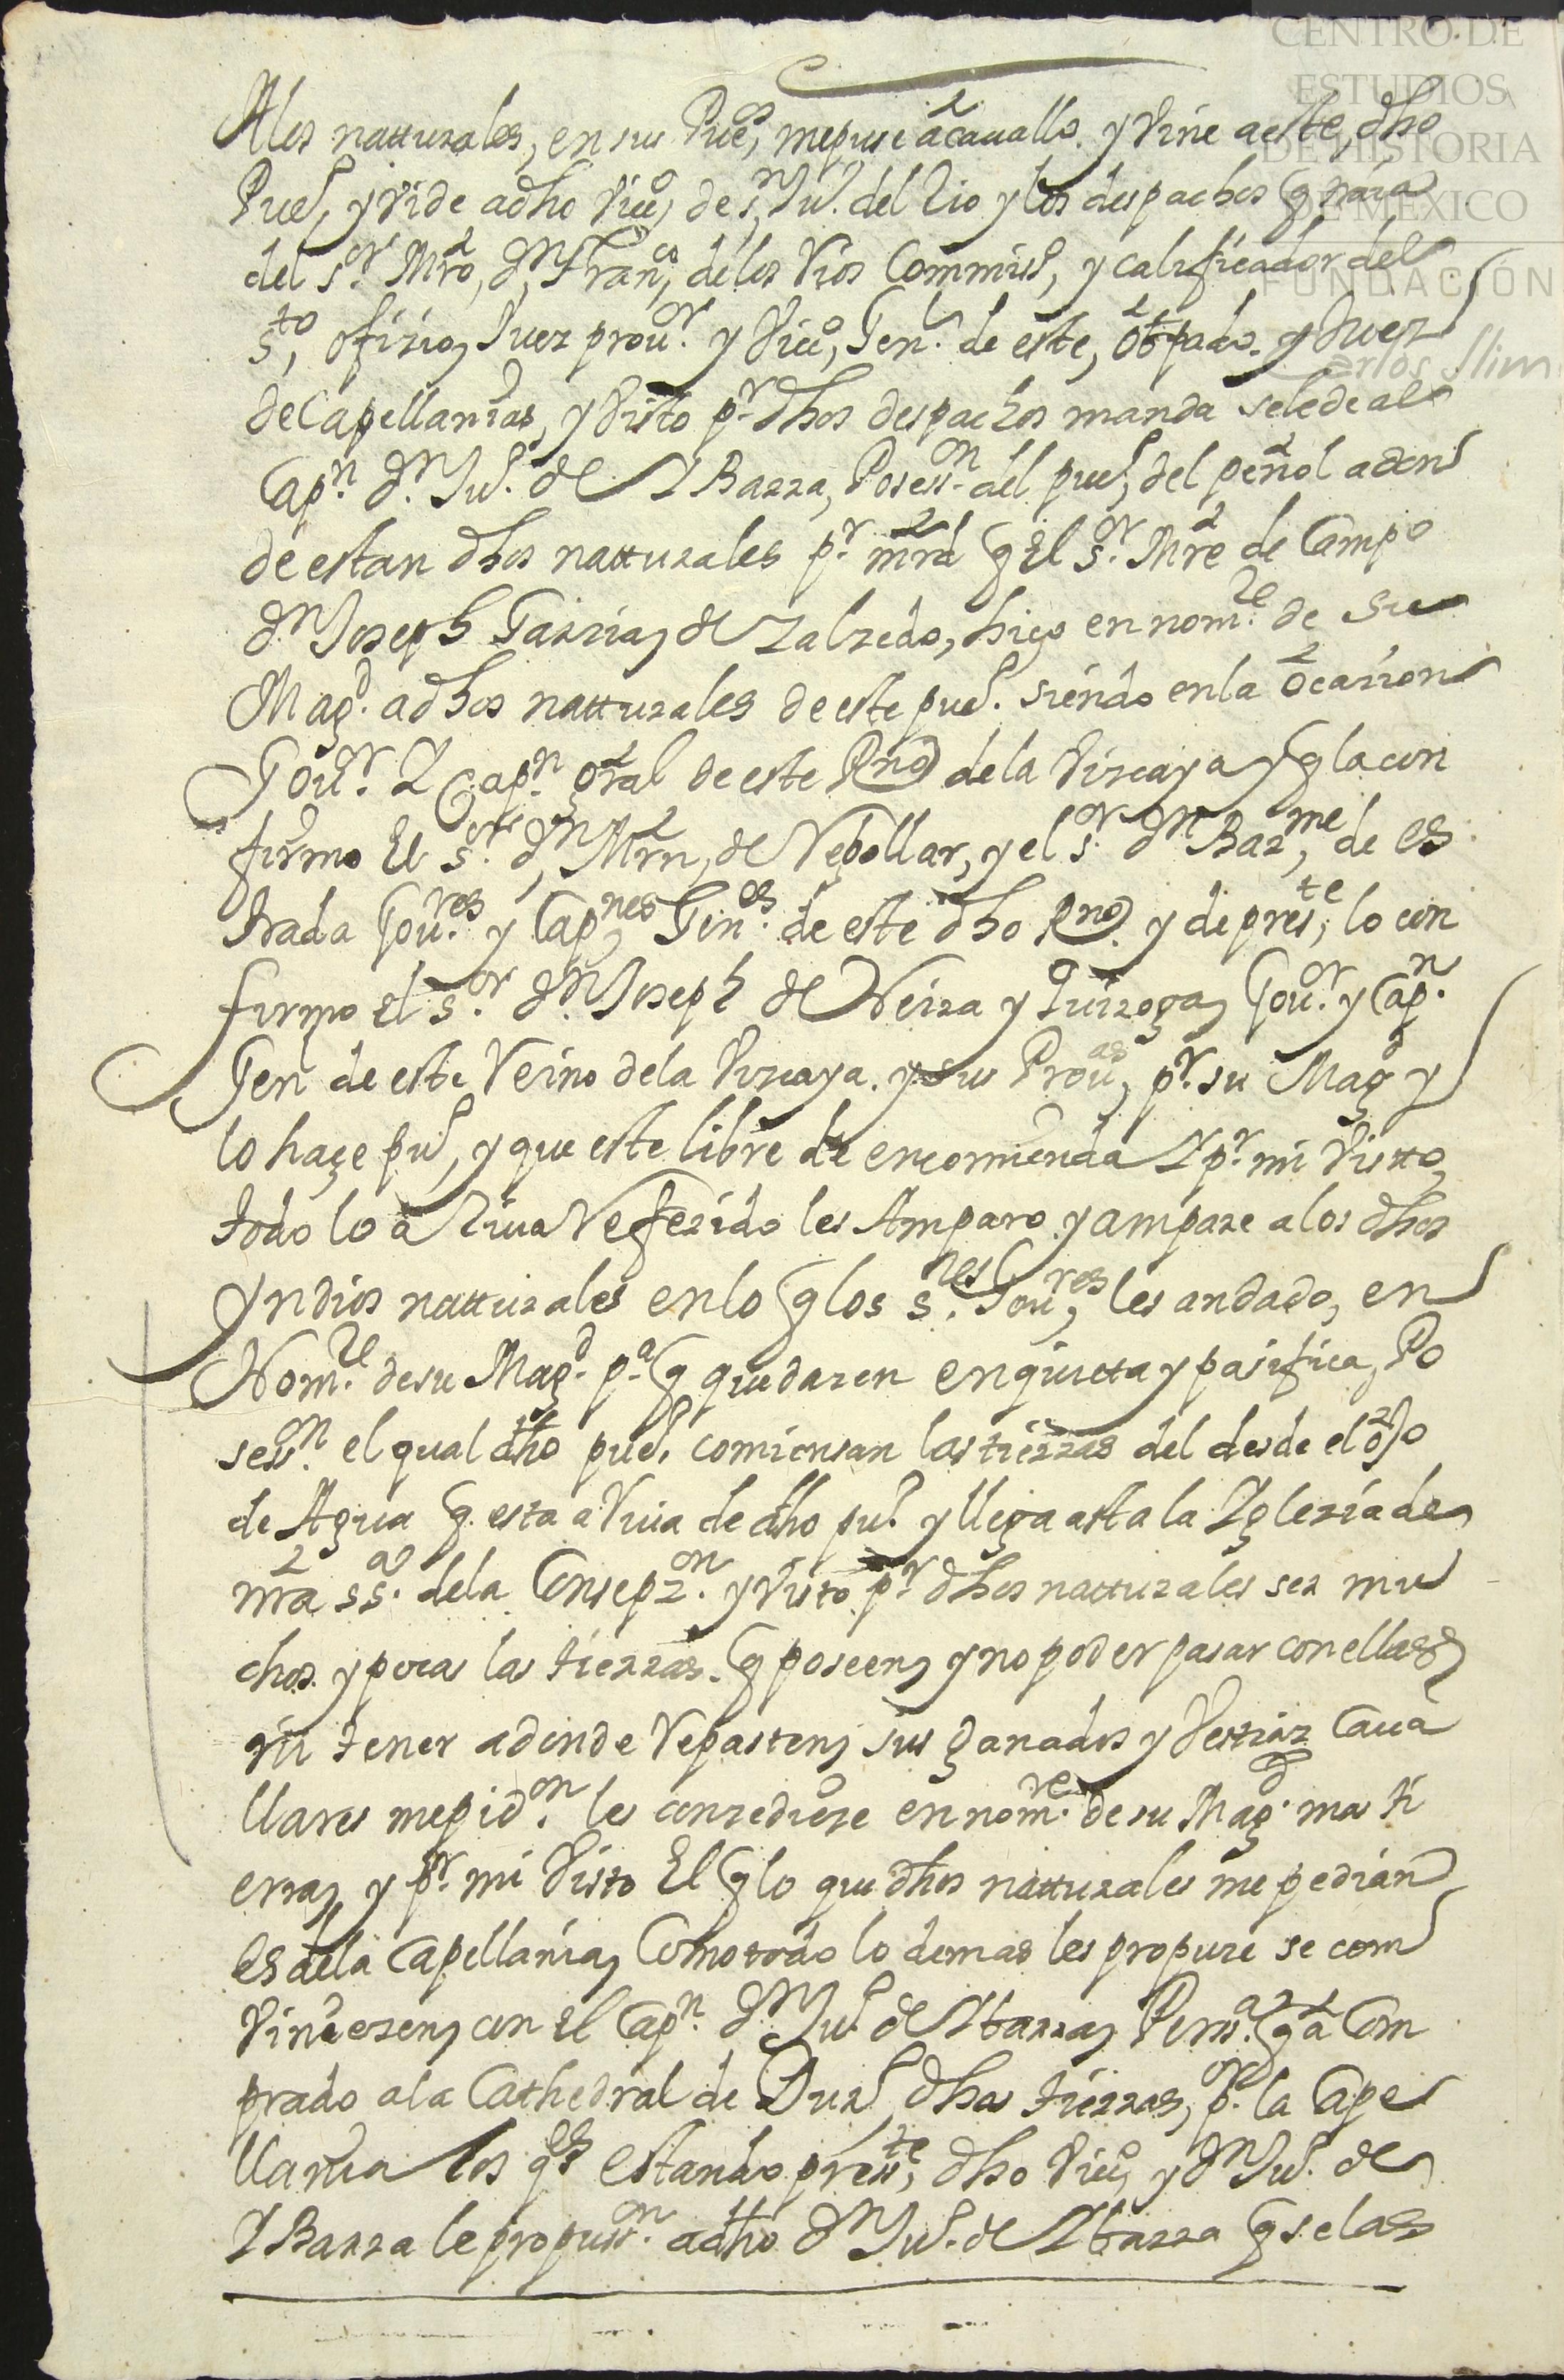 CENTRO DE
ESTUDIOS
DE HISTORIA
DE MÉXICO
FUNDACIÓN
Carlos Slim
Alos natturales, en sus Pueos, mepuse a cauallo. y Vine aeste, dho
Pueo, y Vide adho Vico, de sn Juo. del Rio y los despachos q traia
del sor. Mro, dn Franco, delos Rios Commisso, y calificador del
sto, ofizio, Juez prouor. y Vico, Genl. de este, obpado. y Juez
de Capellanias, y Visto pr. dhos despachos manda sele de al
Capn. dn. Juo. de YBarra, Posesson. del pueo, del peñol adon
de estan dhos natturales pr. mrd q El sor. Mre de Campo
dn. Joseph Garzia, de Zalzedo, hiço en nomre. de su
Magd. adhos natturales de este pueo. siendo en la ocasion
Gour. Y Capn. gral de este Rno dela Viscaya y q la con
firmo El sor. dn, Mrn, de Rebollar, y el sor. dn Barme, de es
trada Goures. y Capnes, Genes. de este dho Rno. y de preste, lo con
firmo el sor. dn. Joseph de Neira y Quiroga, Gouor. y Capn.
Gen de este Reino dela Viscaya. y sus Prouas, pr. su Magd y
lo haçe puo, y que este libre de encomienda Y pr. mi Vistto,
todo lo a Riua Referido les Amparo y ampare a los dhos
Yndios natturales en lo q los sres. Goures, les an dado, en
Nomre. de su Magd. pa. q quedaren en quietta y pasifica, Po
sesson. el qual dho pueo. comiensan las tierras del desde el ojo
de Agua q. esta aRiua de dho puo. y llega asta la Yglezia de
nra ssa. dela Consepzon. y Visto pr dhos natturales ser mu
chos. y pocas las tierras. q poseen, y no poder pasar con ellas,
ni tener adonde Repasten, sus ganados y Vestias Caua
llares mepidon. les consediese en nomre. de su Magd. mas ti
erras, y pr. mi Visto El q lo que dhos natturales me pedian
es dela Capellania, Como todo lo demas les propuse se com
Viniesen, con El Capn. dn. Juo. de Ybarra, Perssa. q a Com
prado ala Cathedral de Duro dhas tierras, por. la Cape
llania los qes estando presste, dho Vico, y dn Juo. de
YBarra le propusson. adho dn Juo. de Ybarra q selas